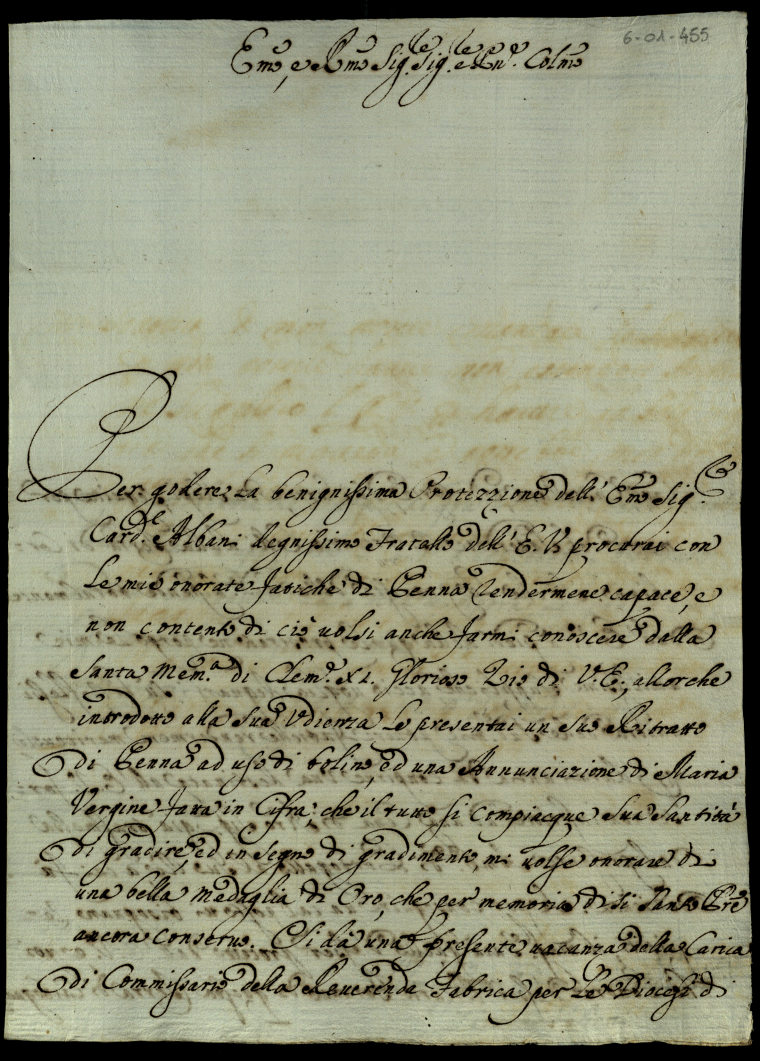 6-01-455
Emo, e Rmo Sig.re Sig.re e Pn. Colmo
Per godere la benignissima Protezzione dell' Emo Sig.re
Card.e Albani degnissimo Fratello dell' E. V. procurai con
le mie onorate fatiche di Penna rendermene capace, e
non contento di ciò volsi anche farmi conoscere dalla
Santa Mem.a di Clem.e XI. Glorioso Zio di V. E., allorche
introdotto alla sua Udienza le presentai un suo Ritratto
di Penna ad uso di bolino, ed una Annunciazione di Maria
Vergine fatta in Cifra, che il tutto si compiacque Sua Santità
di gradire, ed in segno di gradimento, mi volse onorare di
una bella medaglia di Oro, che per memoria di sì Santo Pre
ancora conservo. Si dà una presente vacanza della Carica
di Commissario della Reverenda Fabrica per le Diocesi di